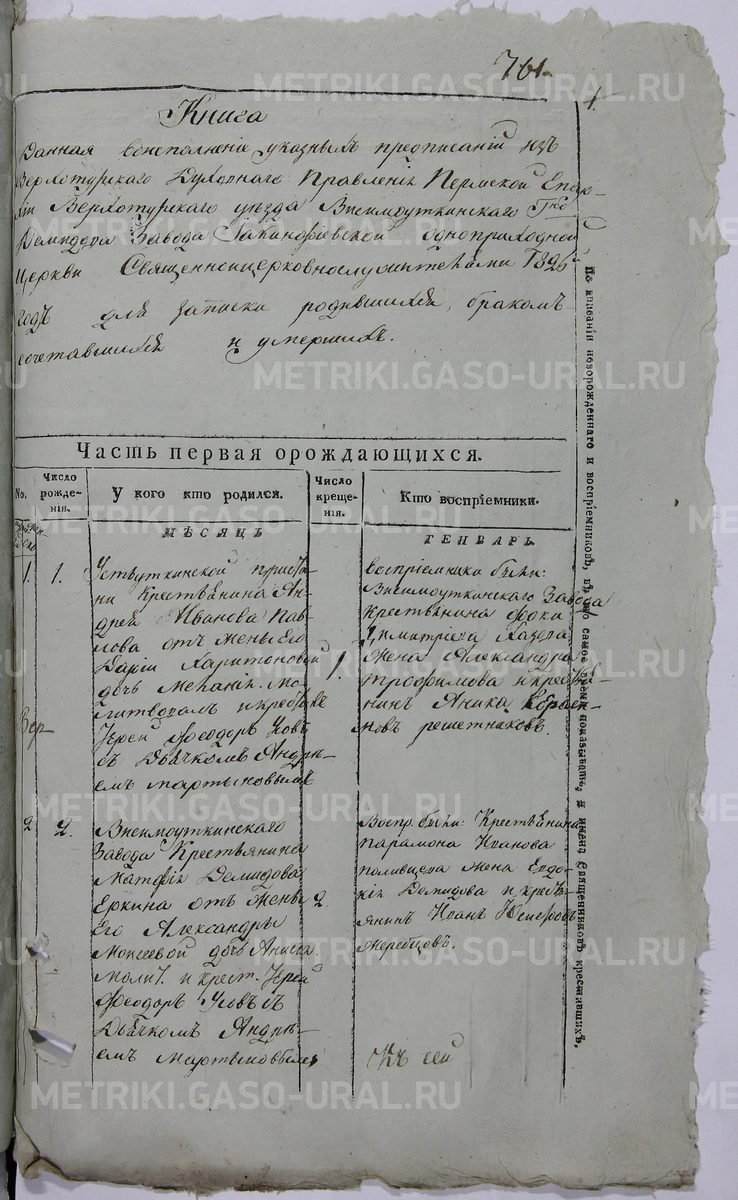 761.
1.
Книга
Данная воисполнение указныхъ предписаній изъ
Верхотурскаго Духовнаго Правленія Пермской Епар-
хіи Верхотурскаго уѣзда Висимоуткинскаго Гна
Демидова Завода одноприходной
Церкви Священноицерковнослужителями 1826
годъ для записки родившихся, бракомъ
сочетавшихся и умершихъ.
Часть первая орождающихся.
No.
Число рожденія.
У кого кто родился.
Число крещенія.
Кто воспріемники.
МѢСЯЦЪ
ГЕНВАРЬ
1.
1.
Устьуткинской приста-
ни Крестьянина Ан-
дрея Иванова Пав-
лова отъ жены Его
Даріи Харитоновой
дочь Меланія. мо-
литвовалъ и крестилъ
Іерей Феодоръ Усовъ
съ Дьячкомъ Андре-
емъ мартыновымъ
1.
воспріемники были:
Висимоуткинскаго Завода
Крестьянина
Димитріева
жена Александра
Трофимова и крестья-
нинъ
новъ решетниковъ.
2
2.
Висимоуткинскаго
Завода Крестьянина
Матфія Демидова
Еркина отъ Жены
Его Александры
Моисеевой дочь Аниса.
молит. и крест. Іерей
Феодоръ Усовъ съ
Дьячкомъ Андре-
емъ Мартыновымъ
2.
Воспр. были: Крестьянина
парамона Иванова
жена Евдо-
кія Демидова и крест-
янинъ Иванъ
Жеребцовъ.
По вписаніи новорожденнаго и воспріемниковъ, въ то самое время показывать, и имена Священниковъ крестившихъ,
METRIKI.GASO-URAL.RU